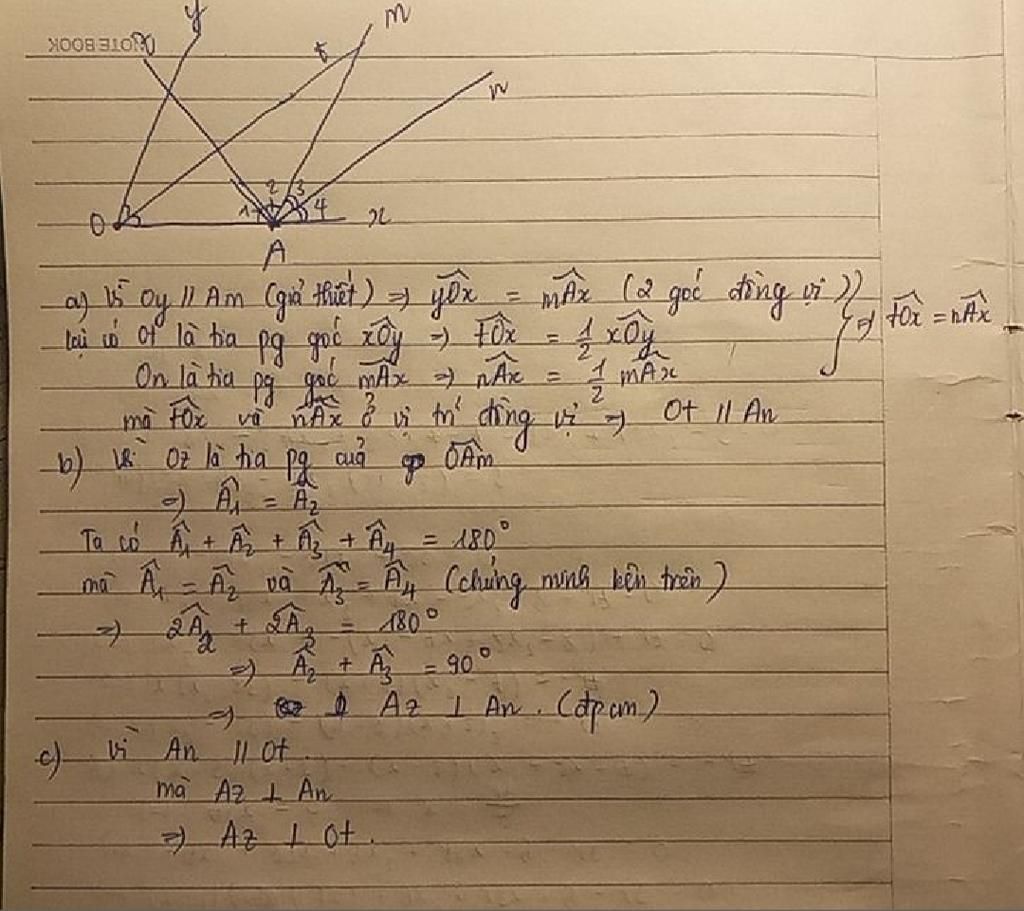 NOTE BOOK
y
z
t
m
n
1 2 3 4
O
A
x
a) Vì Oy // Am (giả thiết) => yÔx = mÂx (2 góc đồng vị)
lại có Ot là tia pg góc xÔy => tÔx = 1/2 xÔy
On là tia pg góc mÂx => nÂx = 1/2 mÂx
} => tÔx = nÂx
mà tÔx và nÂx ở vị trí đồng vị => Ot // An
b) Vì Oz là tia pg của OÂm
=> Â1 = Â2
Ta có Â1 + Â2 + Â3 + Â4 = 180°
mà Â1 = Â2 và Â3 = Â4 (chứng minh bên trên)
=> 2Â2 + 2Â3 = 180°
=> Â2 + Â3 = 90°
=> Az ⊥ An. (đpcm)
c) Vì An // Ot.
mà Az ⊥ An
=> Az ⊥ Ot.